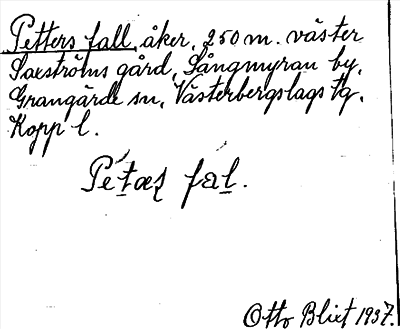 Petters fall, åker, 250 m. väster
Saxströms gård, Sångmyran by,
Grangärde sn, Västerbergslags tg.
Kopp l.
Pétæʂ fal.
Otto Blixt 1937.